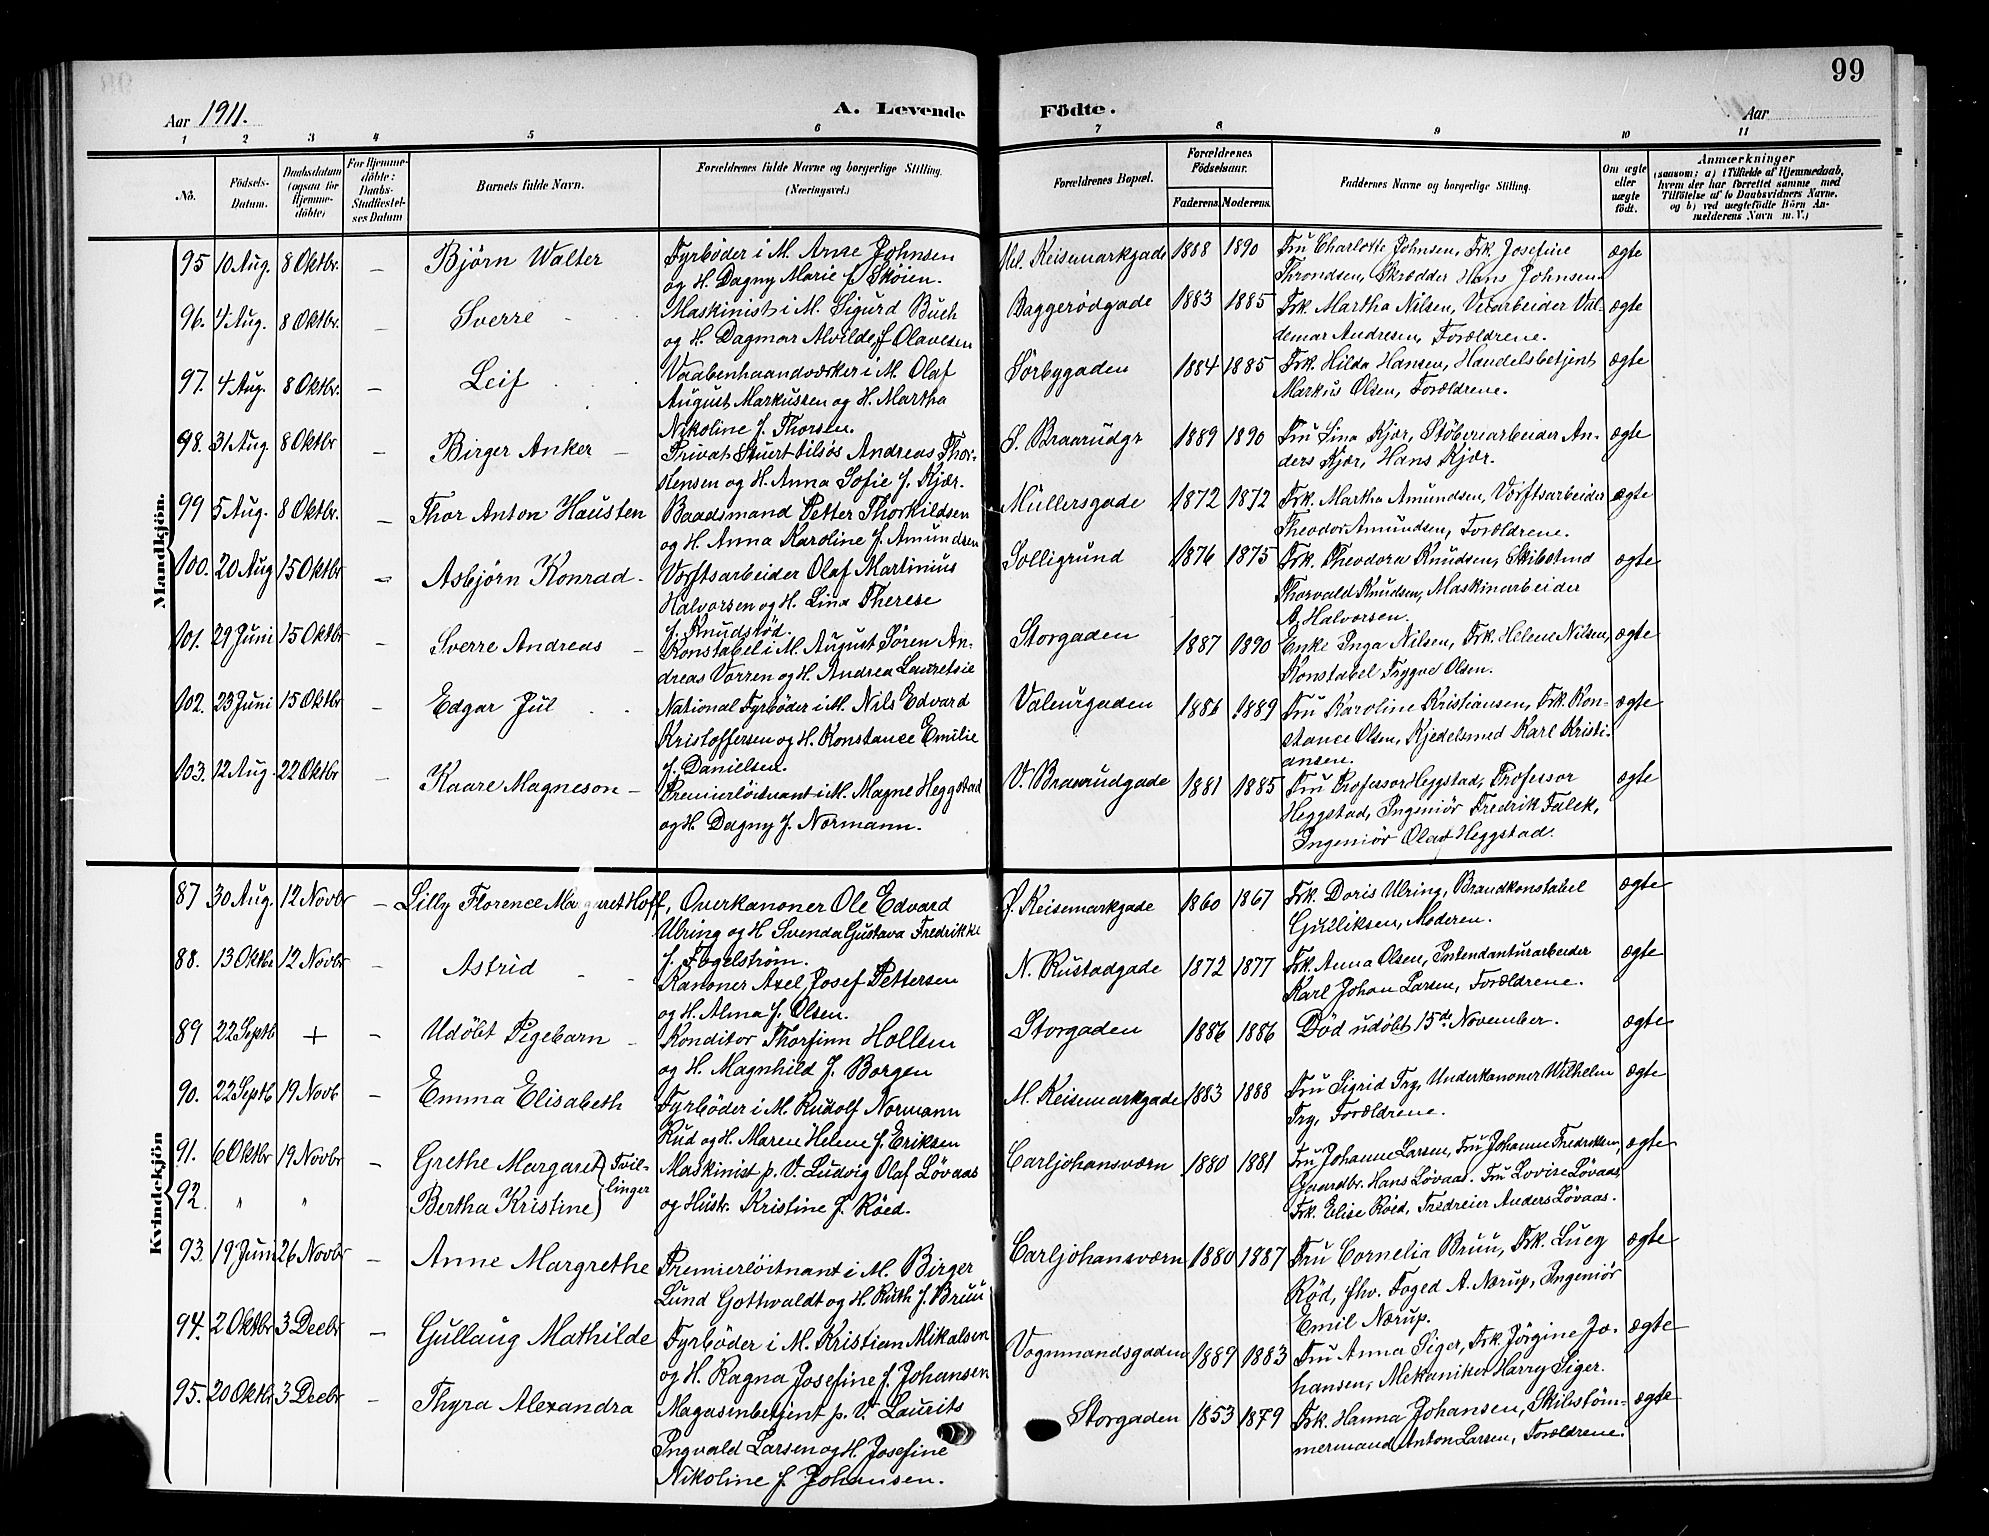 99
Aar 1911. A. Levende Födte. Aar
1 2 3 4 5 6 7 8 9 10 11
No. Födsels-Datum. Daabsdatum (ogsaa for Hjemme-döbte) For Hjemme-döbte: Daabs-Stadfæstelses Datum Barnets fulde Navn. Forældrenes fulde Navne og borgerlige Stilling. (Næringsvei.) Forældrenes Bopæl. Forældrenes Födselsaar. Faderens. Moderens. Faddernes Navne og borgerlige Stilling. Om ægte eller uægte födt. Anmærkninger (saasom: a) i Tilfælde af Hjemmedaab, hvem der har forrettet samme med Tilföielse af to Daabsvidners Navne. og b) ved uægtefödte Börn Anmelderens Navn m. V.)
Mandkjön.
95 10 Aug. 8 Oktbr. – Bjørn Walter Fyrbøder i M. Arne Johnsen Ml. Keisemarkgade 1888 1890 Fru Charlotte Johnsen, Frk. Josefine ægte
og H. Dagny Marie f. Skøien. Throndsen, Skrædder Hans Johnsen
96. 4 Aug. 8 Oktbr. – Sverre Maskinist i M. Sigurd Buch Baggerødgade 1883 1885 Frk. Martha Nilsen, Verarbeider Val- ægte
og H. Dagmar Alvilde f Olavesen demar Andresen, Forældrene.
97. 4 Aug. 8 Oktbr. – Leif Vaabenhaandværker i M. Olaf Sørbygaden 1884 1885 Frk. Hilda Hansen, Handelsbetjent ægte
August Markussen og H. Martha Markus Olsen, Forældrene.
Nikoline f. Thorsen.
98. 31 Aug. 8 Oktbr – Birger Anker Privat Stuert tilsøs Andreas Thor- S. Braarudgr 1889 1890 Fru Lina Kjær, Støberiarbeider An- ægte
stensen og H. Anna Sofie f. Kjær. ders Kjær, Hans Kjær.
99 5 Aug. 8 Oktbr. – Thor Anton Hausten Baadsmand Petter Thorkildsen Müllersgade 1872 1872 Frk. Martha Amundsen, Værftsarbeider ægte
og H. Anna Karoline f. Amundsen Theodor Amundsen, Forældrene.
100. 20 Aug 15 Oktbr – Asbjørn Konrad Værftsarbeider Olaf Martinius Solligrund 1876 1875 Frk. Theodora Knudsen, Skibstmd ægte
Halvorsen og H. Lina Therese Thorvald Knudsen, Maskinarbeider
f. Knudsrød. A. Halvorsen.
101. 29 Juni 15 Oktbr – Sverre Andreas Konstabel i M. August Søren An- Storgaden 1887 1890 Enke Inga Nilsen, Frk. Helene Nilsen, ægte
dreas Vorren og H. Andrea Lauretsie Konstabel Trygve Olsen.
102. 23 Juni 15 Oktbr – Edgar Jul National Fyrbøder i M. Nils Edvard Valeurgaden 1886 1889 Fru Karoline Kristiansen, Frk. Kon- ægte
Kristoffersen og H. Konstance Emilie stance Olsen, Kjedelsmed Karl Kristi-
f. Danielsen. ansen.
103. 12 Aug. 22 Oktbr – Kaare Magneson Premierløitnant i M. Magne Heggstad V. Braarudgade 1881 1885 Fru Professor Heggstad, Professor ægte
og H. Dagny f. Normann. Heggstad, Ingeniør Fredrik Falck,
Ingeniør Olav Heggstad.
Kvindekjön
87 30 Aug. 12 Novbr – Lilly Florence Margaret Hoff, Overkanoner Ole Edvard Ø. Keisemarkgade 1860 1867 Frk. Doris Ulring, Brandkonstabel ægte
Ulring og H Svenda Gustava Fredrikke Gulliksen, Moderen.
f. Fogelstrøm.
88. 13 Oktbr 12 Novbr – Astrid Kanoner Axel Josef Pettersen N. Rustadgade 1872 1877 Frk. Anna Olsen, Intendanturarbeider ægte
og H. Alma f. Olsen. Karl Johan Larsen, Forældrene.
89 22 Septb + – Udøbt Pigebarn Konditor Thorfinn Hollem Storgaden 1886 1886 Død udøbt 15de November. ægte
og H. Magnhild f. Borgen
90. 22 Septb 19 Novb – Emma Elisabeth Fyrbøder i M. Rudolf Normann M. Keisemarkgade 1883 1888 Fru Sigrid Try, Underkanoner Wilhelm ægte
Rud og H. Maren Helene f. Eriksen Try, Forældrene.
91. 6 Oktbr 19 Novbr – Grethe Margaret Tvil- Maskinist p. V. Ludvig Olaf Løvaas Carljohansværn 1880 1881 Fru Johanne Larsen, Fru Johanne Fredriksen, ægte
92. " " Bertha Kristine linger og Hustr. Kristine f. Røed. Gaardbr. Hans Løvaas. Fru Lovise Løvaas,
Frk. Elise Røed, Fredreier Anders Løvaas.
93. 19 Juni 26 Novbr – Anne Margrethe Premierløitnant i M. Birger Carljohansværn 1880 1887 Fru Cornelia Bruu, Frk. Lucy ægte
Lund Gottwaldt og H. Ruth f. Bruu Röd, fhv. Foged A. Nærup, Ingeniør
Emil Nærup.
94. 2 Oktbr 3 Decbr – Gullaug Mathilde Fyrbøder i M. Kristian Mikalsen Vognmandsgaden 1889 1883 Fru Anna Siger, Frk. Jørgine Jo- ægte
og H. Ragna Josefine f. Johansen hansen, Mekaniker Harry Siger.
95. 20 Oktbr 3 Decbr – Thyra Alexandra Magasinbetjent p. V. Laurits Storgaden 1853 1879 Frk. Hanna Johansen, Skibstøm- ægte
Ingvald Larsen og H. Josefine mermand Anton Larsen, Forældrene.
Nikoline f. Johansen.